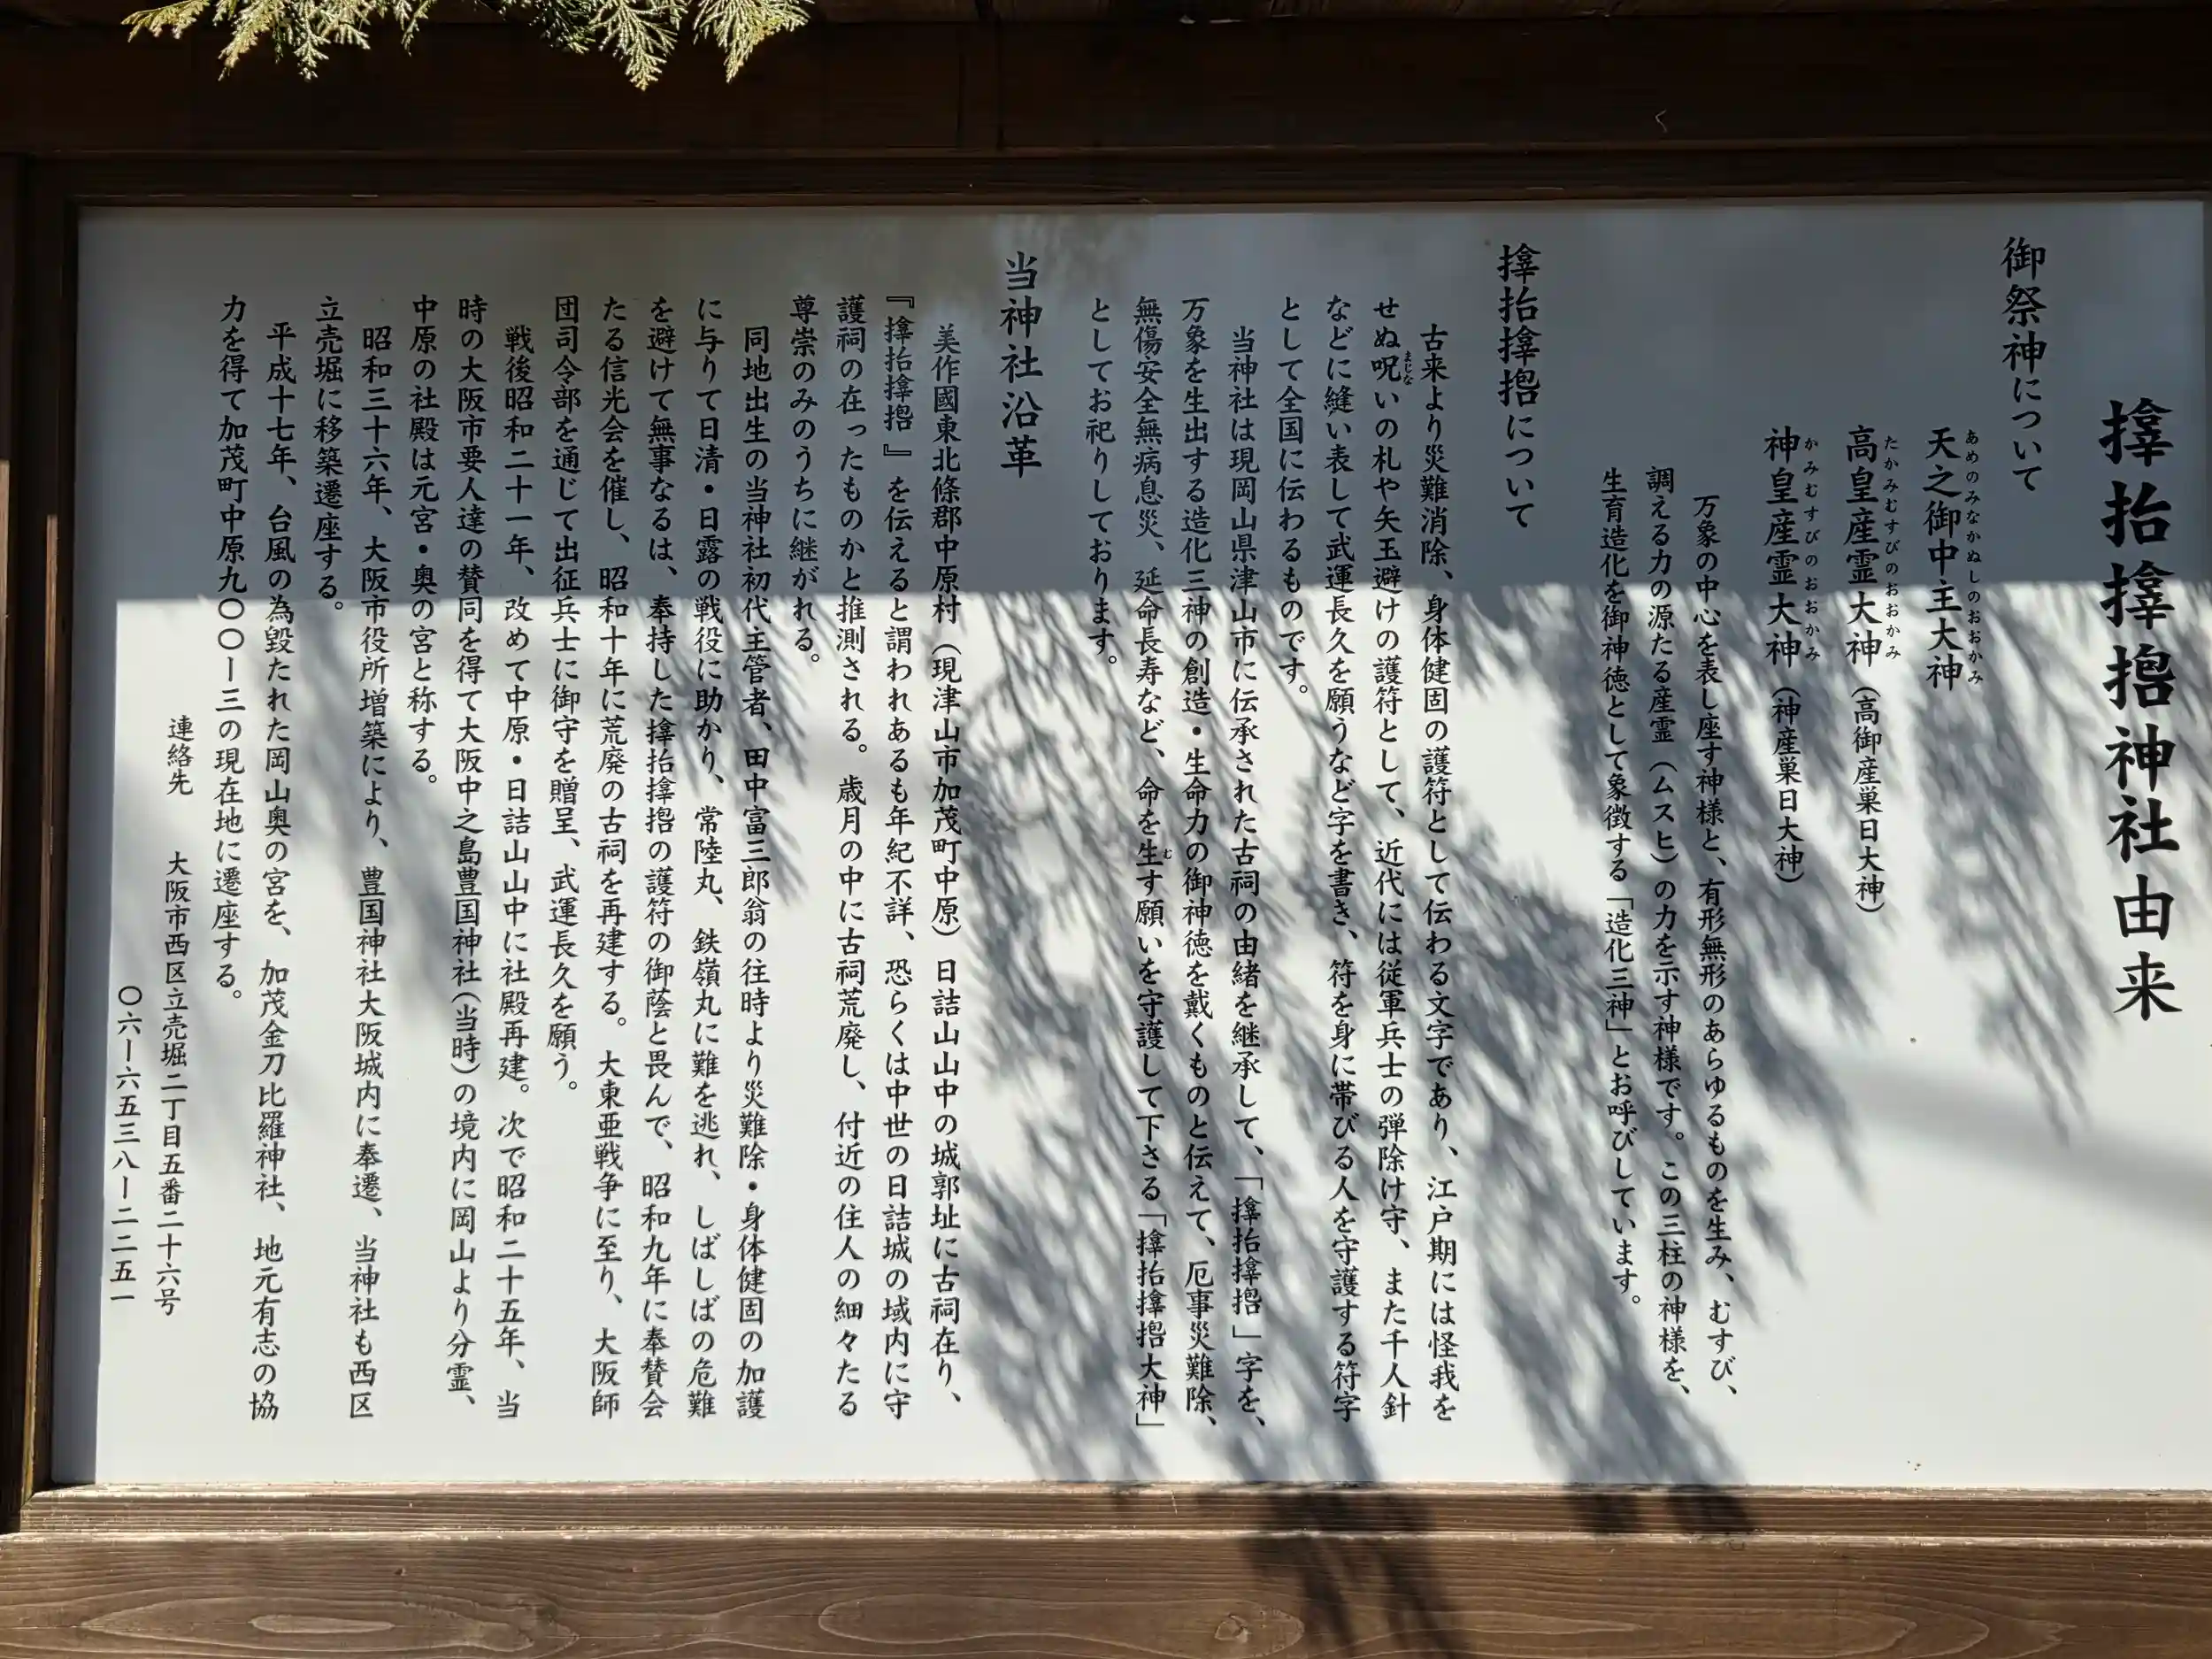 𪮷抬𪮷𪮇神社由来
御祭神について
あめのみなかぬしのおおかみ
天之御中主大神
たかみむすびのおおかみ
高皇産霊大神（高御産巣日大神）
かみむすびのおおかみ
神皇産霊大神（神産巣日大神）
万象の中心を表し座す神様と、有形無形のあらゆるものを生み、むすび、
調える力の源たる産霊（ムスヒ）の力を示す神様です。この三柱の神様を、
生育造化を御神徳として象徴する「造化三神」とお呼びしています。
𪮷抬𪮷𪮇について
古来より災難消除、身体健固の護符として伝わる文字であり、江戸期には怪我を
まじな
せぬ呪いの札や矢玉避けの護符として、近代には従軍兵士の弾除け守、また千人針
などに縫い表して武運長久を願うなど字を書き、符を身に帯びる人を守護する符字
として全国に伝わるものです。
当神社は現岡山県津山市に伝承された古祠の由緒を継承して、「𪮷抬𪮷𪮇」字を、
万象を生出する造化三神の創造・生命力の御神徳を戴くものと伝えて、厄事災難除、
む
無傷安全無病息災、延命長寿など、命を生す願いを守護して下さる「𪮷抬𪮷𪮇大神」
としてお祀りしております。
当神社沿革
美作國東北條郡中原村（現津山市加茂町中原）日詰山山中の城郭址に古祠在り、
『𪮷抬𪮷𪮇』を伝えると謂われあるも年紀不詳、恐らくは中世の日詰城の域内に守
護祠の在ったものかと推測される。歳月の中に古祠荒廃し、付近の住人の細々たる
尊崇のみのうちに継がれる。
同地出生の当神社初代主管者、田中富三郎翁の往時より災難除・身体健固の加護
に与りて日清・日露の戦役に助かり、常陸丸、鉄嶺丸に難を逃れ、しばしばの危難
を避けて無事なるは、奉持した𪮷抬𪮷𪮇の護符の御蔭と畏んで、昭和九年に奉賛会
たる信光会を催し、昭和十年に荒廃の古祠を再建する。大東亜戦争に至り、大阪師
団司令部を通じて出征兵士に御守を贈呈、武運長久を願う。
戦後昭和二十一年、改めて中原・日詰山山中に社殿再建。次で昭和二十五年、当
時の大阪市要人達の賛同を得て大阪中之島豊国神社（当時）の境内に岡山より分霊、
中原の社殿は元宮・奥の宮と称する。
昭和三十六年、大阪市役所増築により、豊国神社大阪城内に奉遷、当神社も西区
立売堀に移築遷座する。
平成十七年、台風の為毀たれた岡山奥の宮を、加茂金刀比羅神社、地元有志の協
力を得て加茂町中原九〇〇ー三の現在地に遷座する。
連絡先　大阪市西区立売堀二丁目五番二十六号
〇六ー六五三八ー二二五一